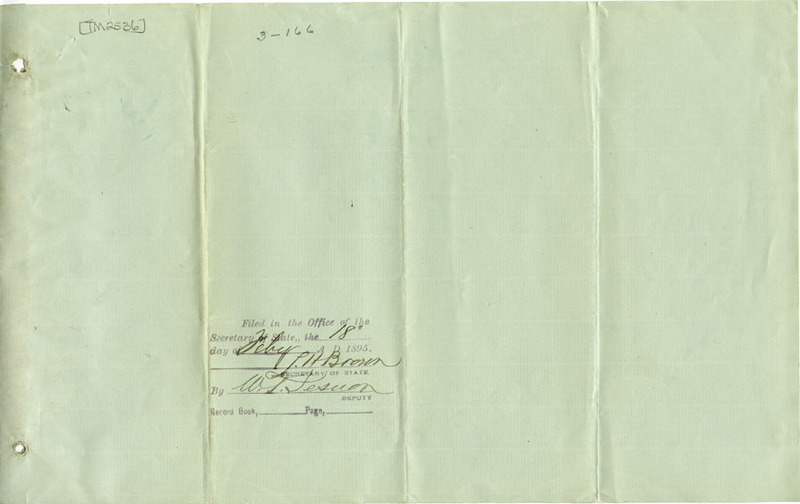 [TM2536]
3-166
Filed in the Office of the
Secretary of State, the 18"
day of Feby A.D. 1895.
L.H. Brown
SECRETARY OF STATE.
By W.T. 
DEPUTY
Record Book, Page,